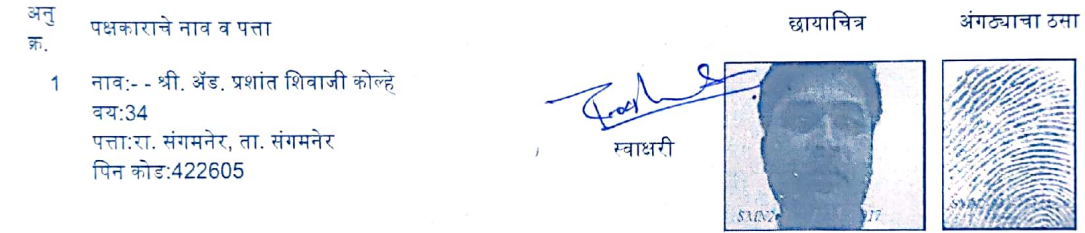 अनु क्र. पक्षकाराचे नाव व पत्ता छायाचित्र अंगठ्याचा ठसा
1 नाव:- - श्री. ॲड. प्रशांत शिवाजी कोल्हे
वय:34
पत्ता:रा. संगमनेर, ता. संगमनेर
पिन कोड:422605
स्वाक्षरी